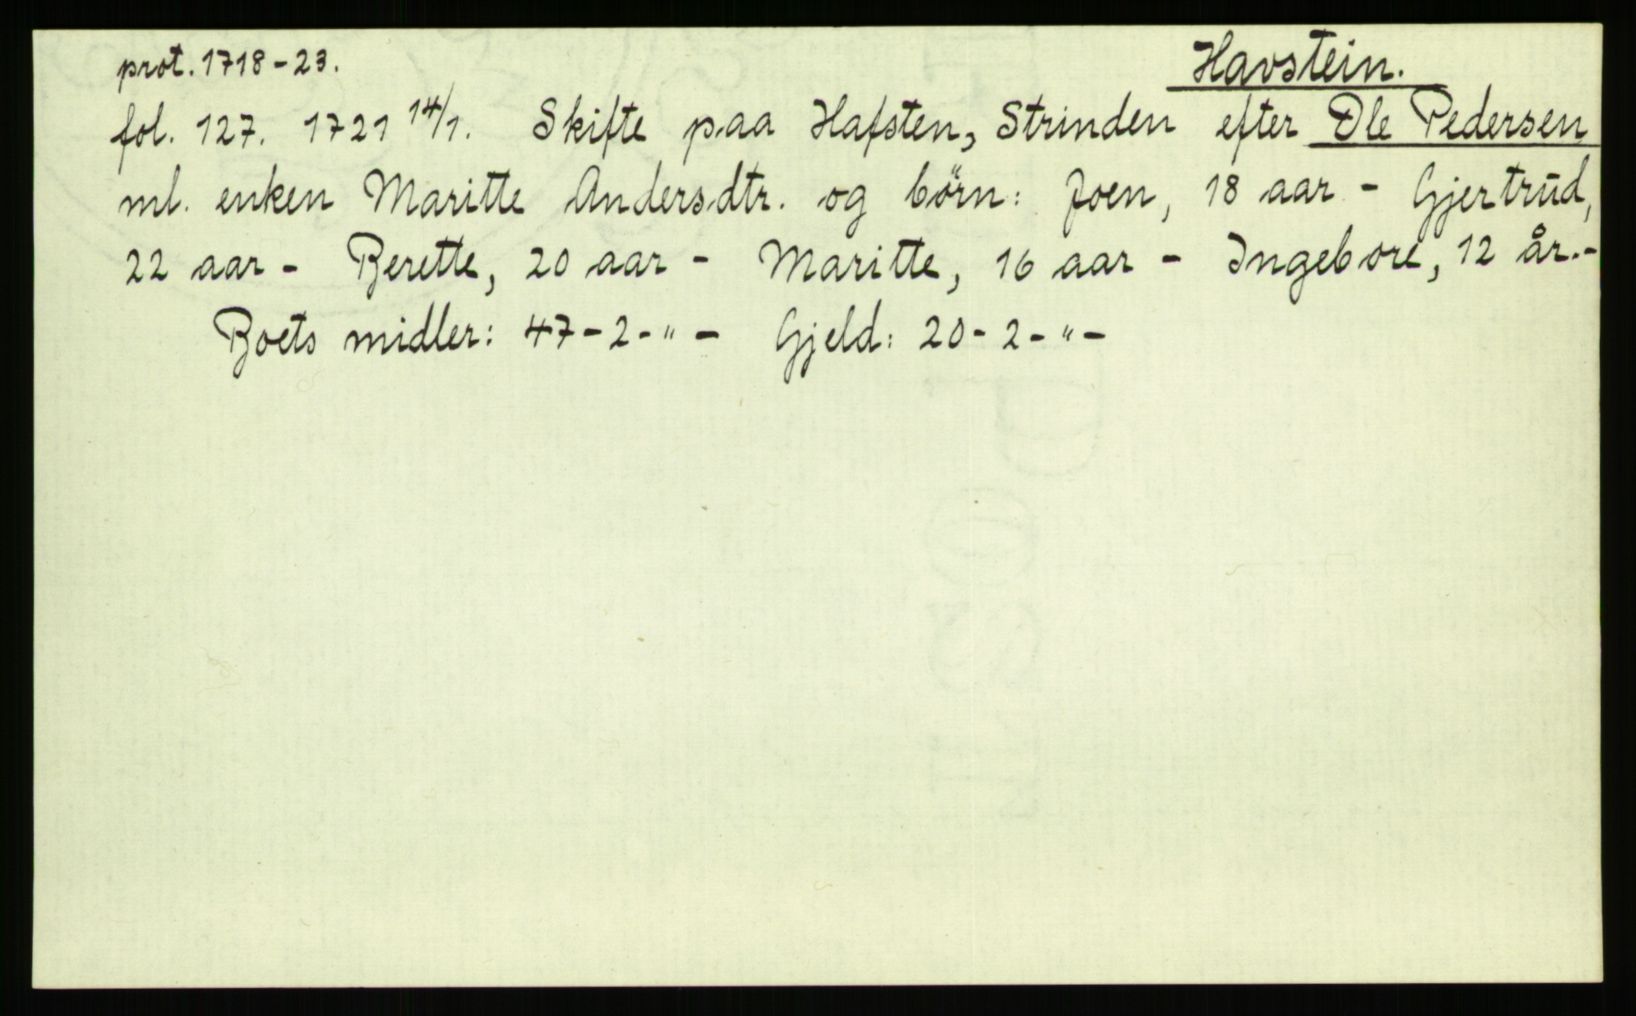 prot. 1718-23. Havstein.
fol. 127. 1721 14/1. Skifte paa Hafsten, Strinden efter Ole Pedersen
ml. enken Maritte Andersdtr. og börn: Joen, 18 aar - Gjertrud,
22 aar - Berette, 20 aar - Maritte, 16 aar - Ingeboré, 12 år.-
Boets midler: 47-2-"- Gjeld: 20-2-"-